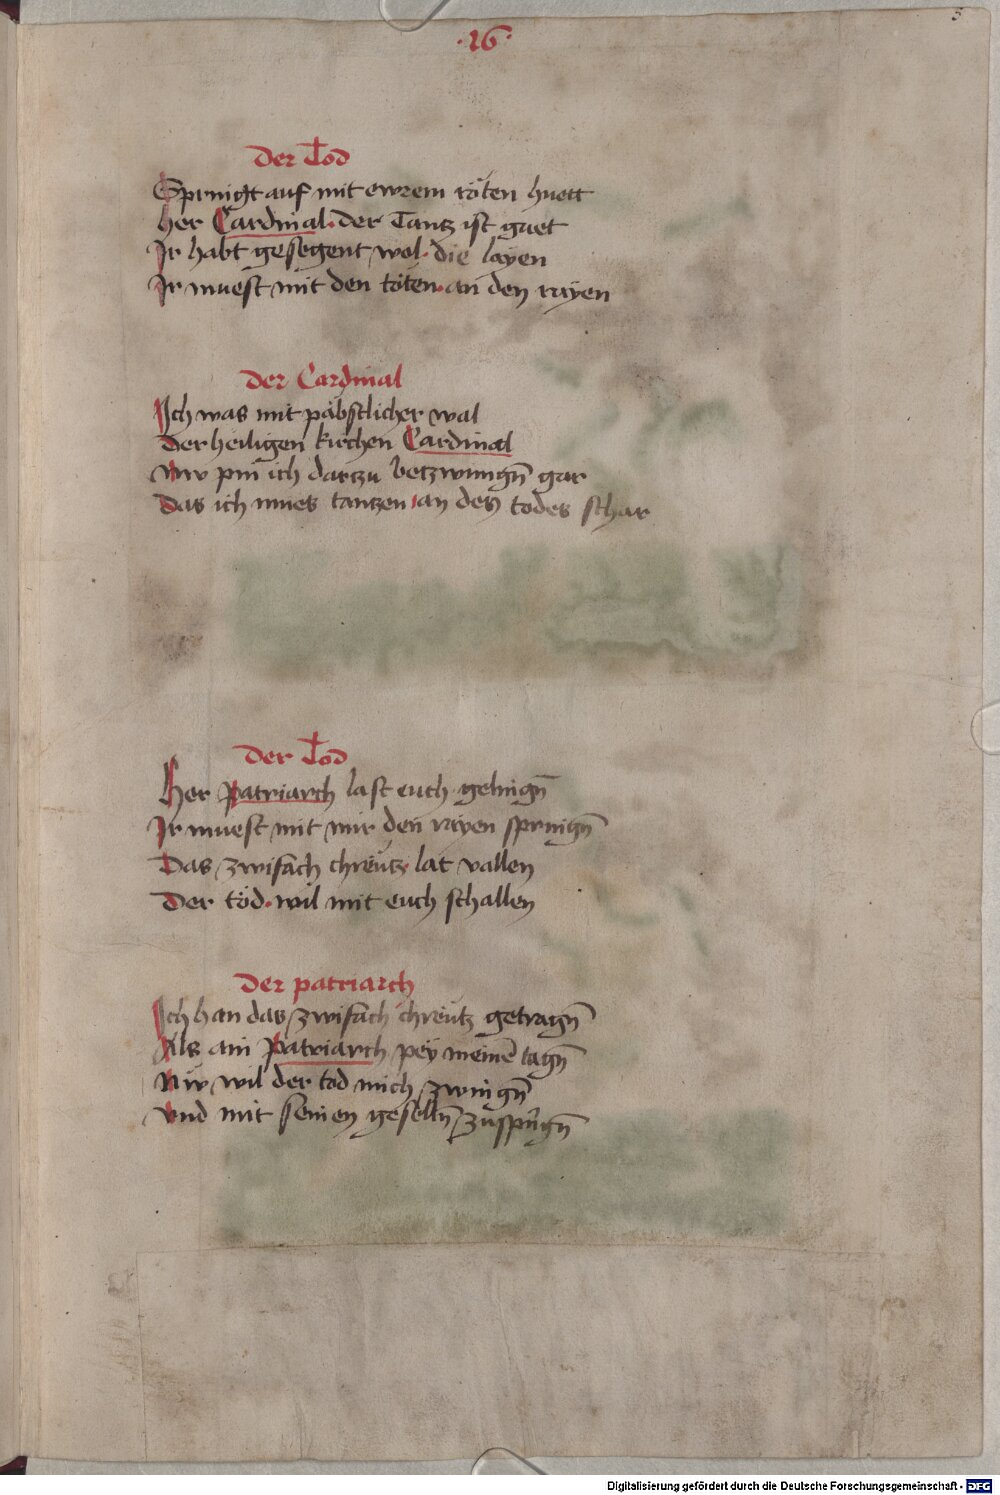 ·26·
5
Der Tod
Springt auf mit ewrem röten huett
her Cardinal. der Tantz ist guet
Ir habt gesegent wol. die layen
Ir muest mit den töten. an den rayen
Der Cardinal
Ich was mit päbstlicher wal
Der heiligen kirchen Cardinal
Nw pin ich dartzu betzwungn̄ gar
Das ich mues tantzen an des todes schar
Der Tod
Her Patriarch last euch gelingn̄
Ir muest mit mir den rayen springn̄
Das zwifach chreütz lat vallen
Der töd. wil mit euch schallen
Der patriarch
Ich han das zwifach chreütz getragn̄
Als ain Patriarch pey meinē tagn̄
Nw wil der tod mich zwingn̄
Vnd mit seinen geselln̄ zuspringn̄
Digitalisierung gefördert durch die Deutsche Forschungsgemeinschaft - DFG